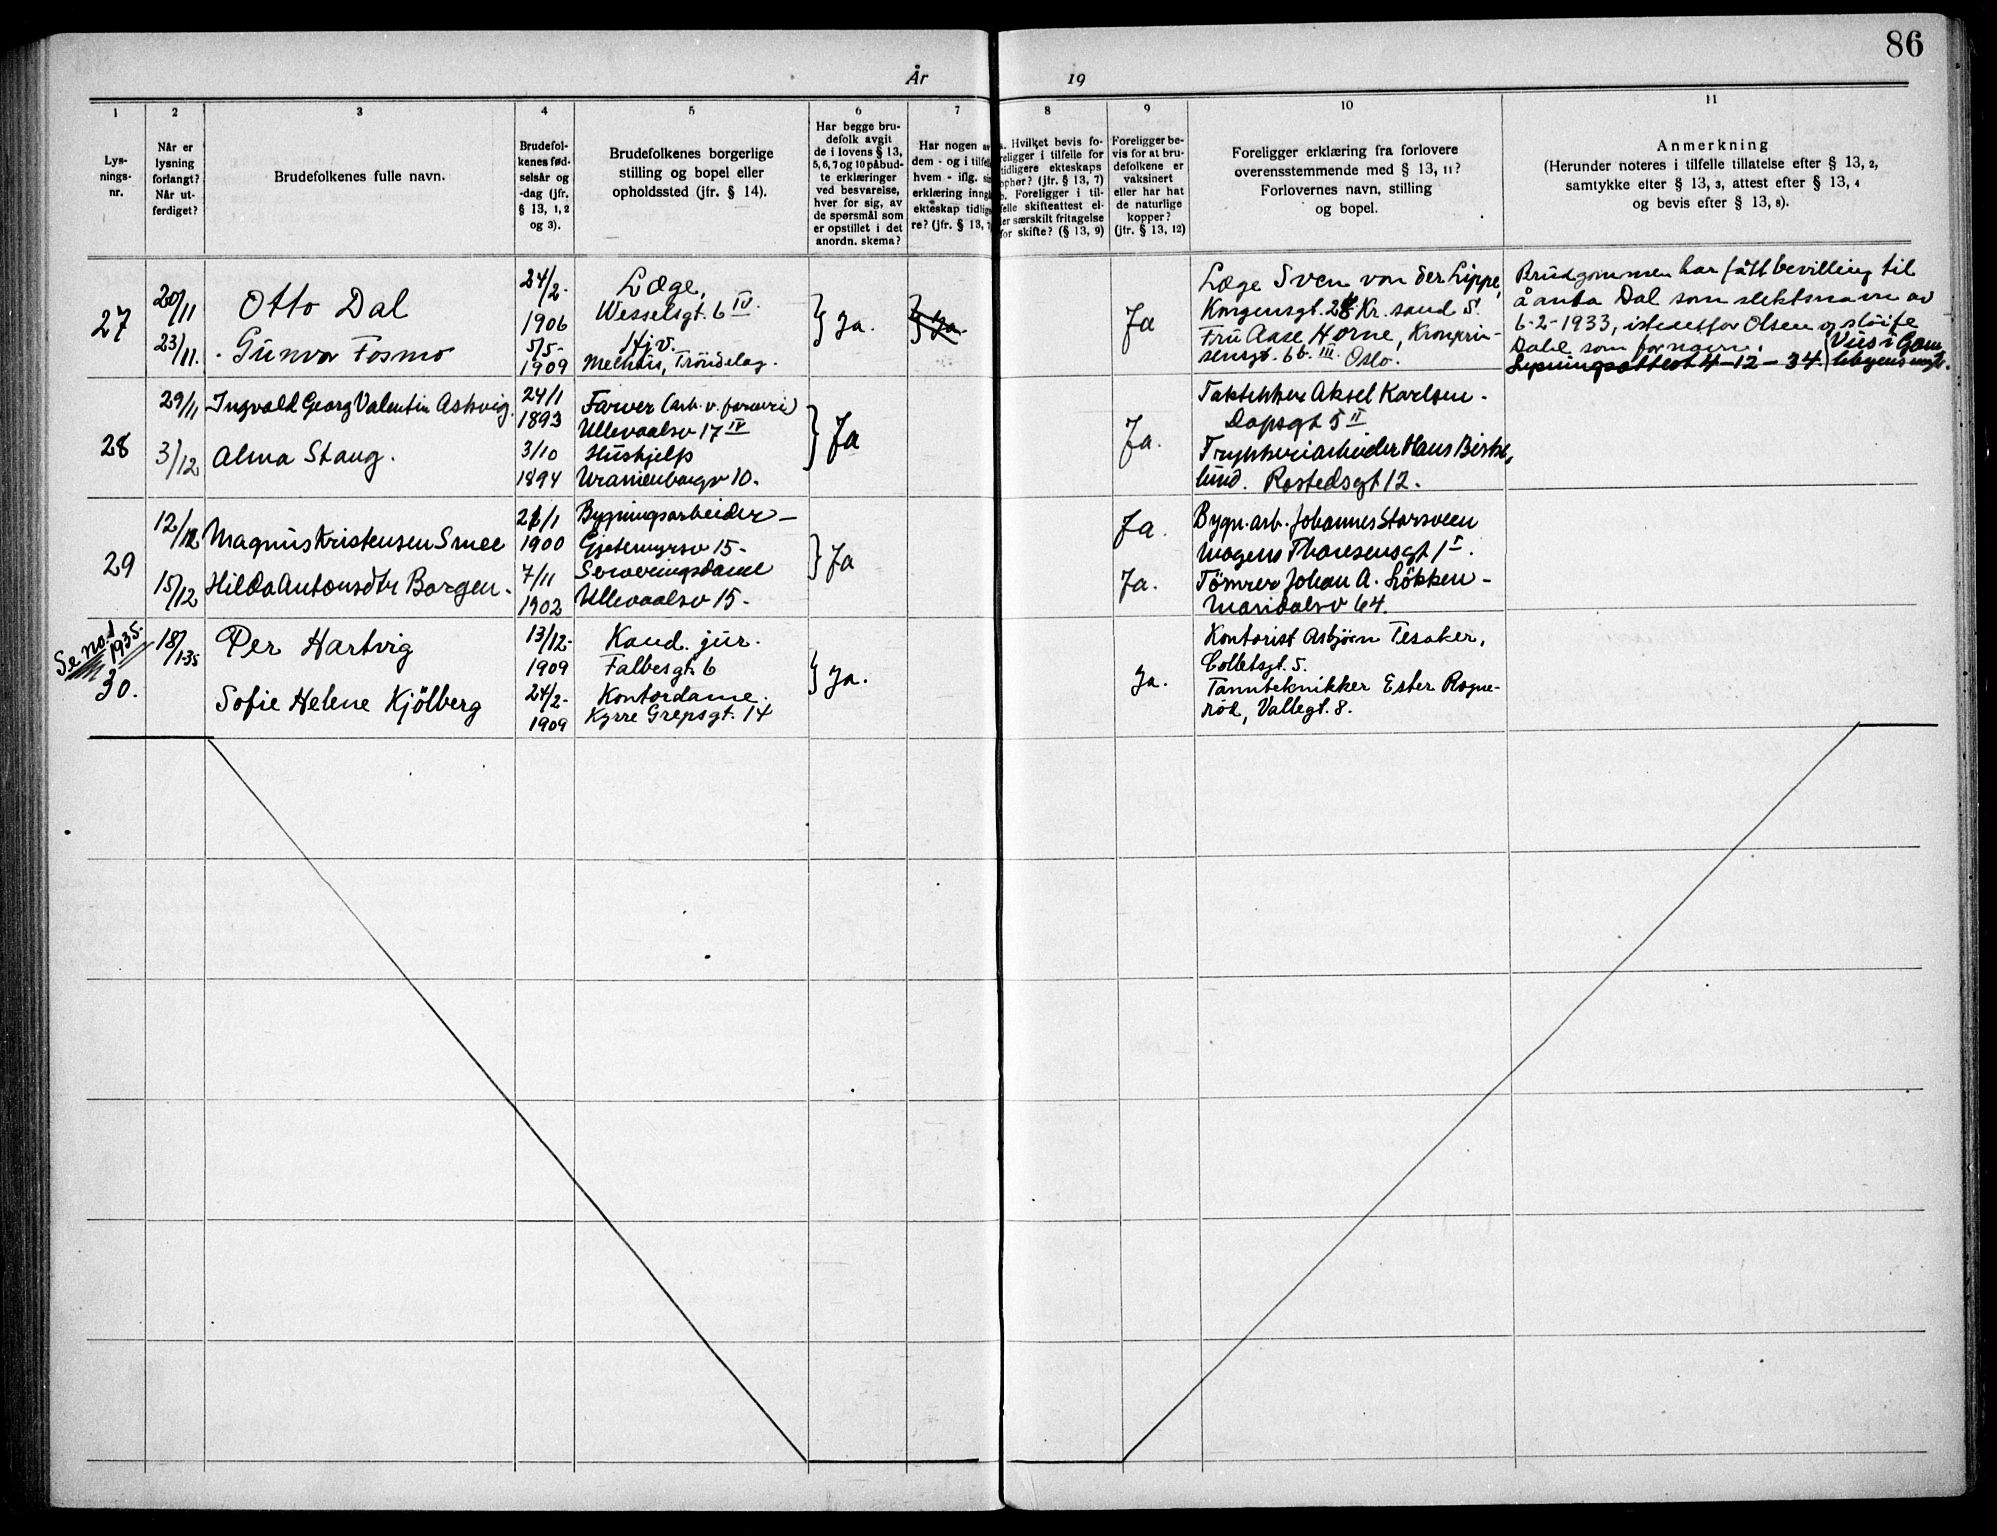 86
År 19
1
Lys-
nings-
nr.
2
Når er
lysning
forlangt?
Når ut-
ferdiget?
3
Brudefolkenes fulle navn.
4
Brudefol-
kenes fød-
selsår og
-dag (jfr.
§ 13, 1, 2
og 3).
5
Brudefolkenes borgerlige
stilling og bopel eller
opholdssted (jfr. § 14).
6
Har begge bru-
defolk avgit
de i lovens § 13,
5, 6, 7 og 10 påbud-
te erklæringer
ved besvarelse,
hver for sig, av
de spørsmål som
er opstillet i det
anordn. skema?
7
Har nogen a
dem - og i tilfelle
hvem - iflg. si
erklæring inng
ekteskap tidlig
re? (jfr. § 13, 7
8
a. Hvilket bevis fo-
religger i tilfelle for
tidligere ekteskaps
ophør? (jfr. § 13, 7)
b. Foreligger i til-
felle skifteattest el-
ler særskilt fritagelse
for skifte? (§ 13, 9)
9
Foreligger be-
vis for at bru-
defolkene er
vaksinert
eller har hat
de naturlige
kopper?
(jfr. § 13, 12)
10
Foreligger erklæring fra forlovere
overensstemmende med § 13, 11?
Forlovernes navn, stilling
og bopel.
11
Anmerkning
(Herunder noteres i tilfelle tillatelse efter § 13, 2,
samtykke efter § 13, 3, attest efter § 13, 4
og bevis efter § 13, 8).
27
20/11
23/11.
Otto Dal
Gunvor Fosmo
24/2-
1906
5/5-
1909
Læge,
Wesselsgt. 6 IV.
Hjv.
Melhus, Tröndelag.
Ja.
Ja.
Ja
Læge Sven von der Lippe,
Kongensgt. 28 Kr. sand S.
Fru Aase Horne, Kronprin-
sensgt. 6b. III. Oslo.
Brudgommen har fått bevilling til
å anta Dal som slektsnavn av
6-2-1933, istedetfor Olsen og slöife
Dahl som fornavn.
Lysningsattest 4-12-34.
Vies i Gam
28
29/11
3/12
Ingvald Georg Valentin Askvig
Alma Staug.
24/1
1893
3/10
1894
Farver (arb. v. farveri)
Ullevaalsv 17 IV
Hushjelp
Uranienborgv 10.
Ja
Ja.
Taktekker Aksel Karlsen.
Dapsgt 5 II
Trykkeriarbeider Hans Birke
lund. Rostedsgt 12.
29
12/12
15/12
Magnus Kristensen Smee
Hilda Antonsdtr Borgen.
1900
7/11
1902
Bygningsarbeider -
Gjetemyrsv 15-
Serveringsdame
Ullevaalsv 15-
Ja
Ja.
Ja.
Bygn. arb. Johannes Storsveen
Mogens Thoresensgt 1 I.
Tömrer Johan A. Lökken -
Maridalsv 64.
Se no. 1
1935.
30.
18/1-35
Per Hartvig
Sofie Helene Kjölberg
13/12-
1909
24/2-
1909
Kand. jur.
Falbesgt. 6
Kontordame.
Kyrre Grepsgt. 14
Ja.
Ja.
Kontorist Asbjörn Tesaker,
Colletsgt. 5.
Tannteknikker Ester Rogne-
röd, Vallegt. 8.